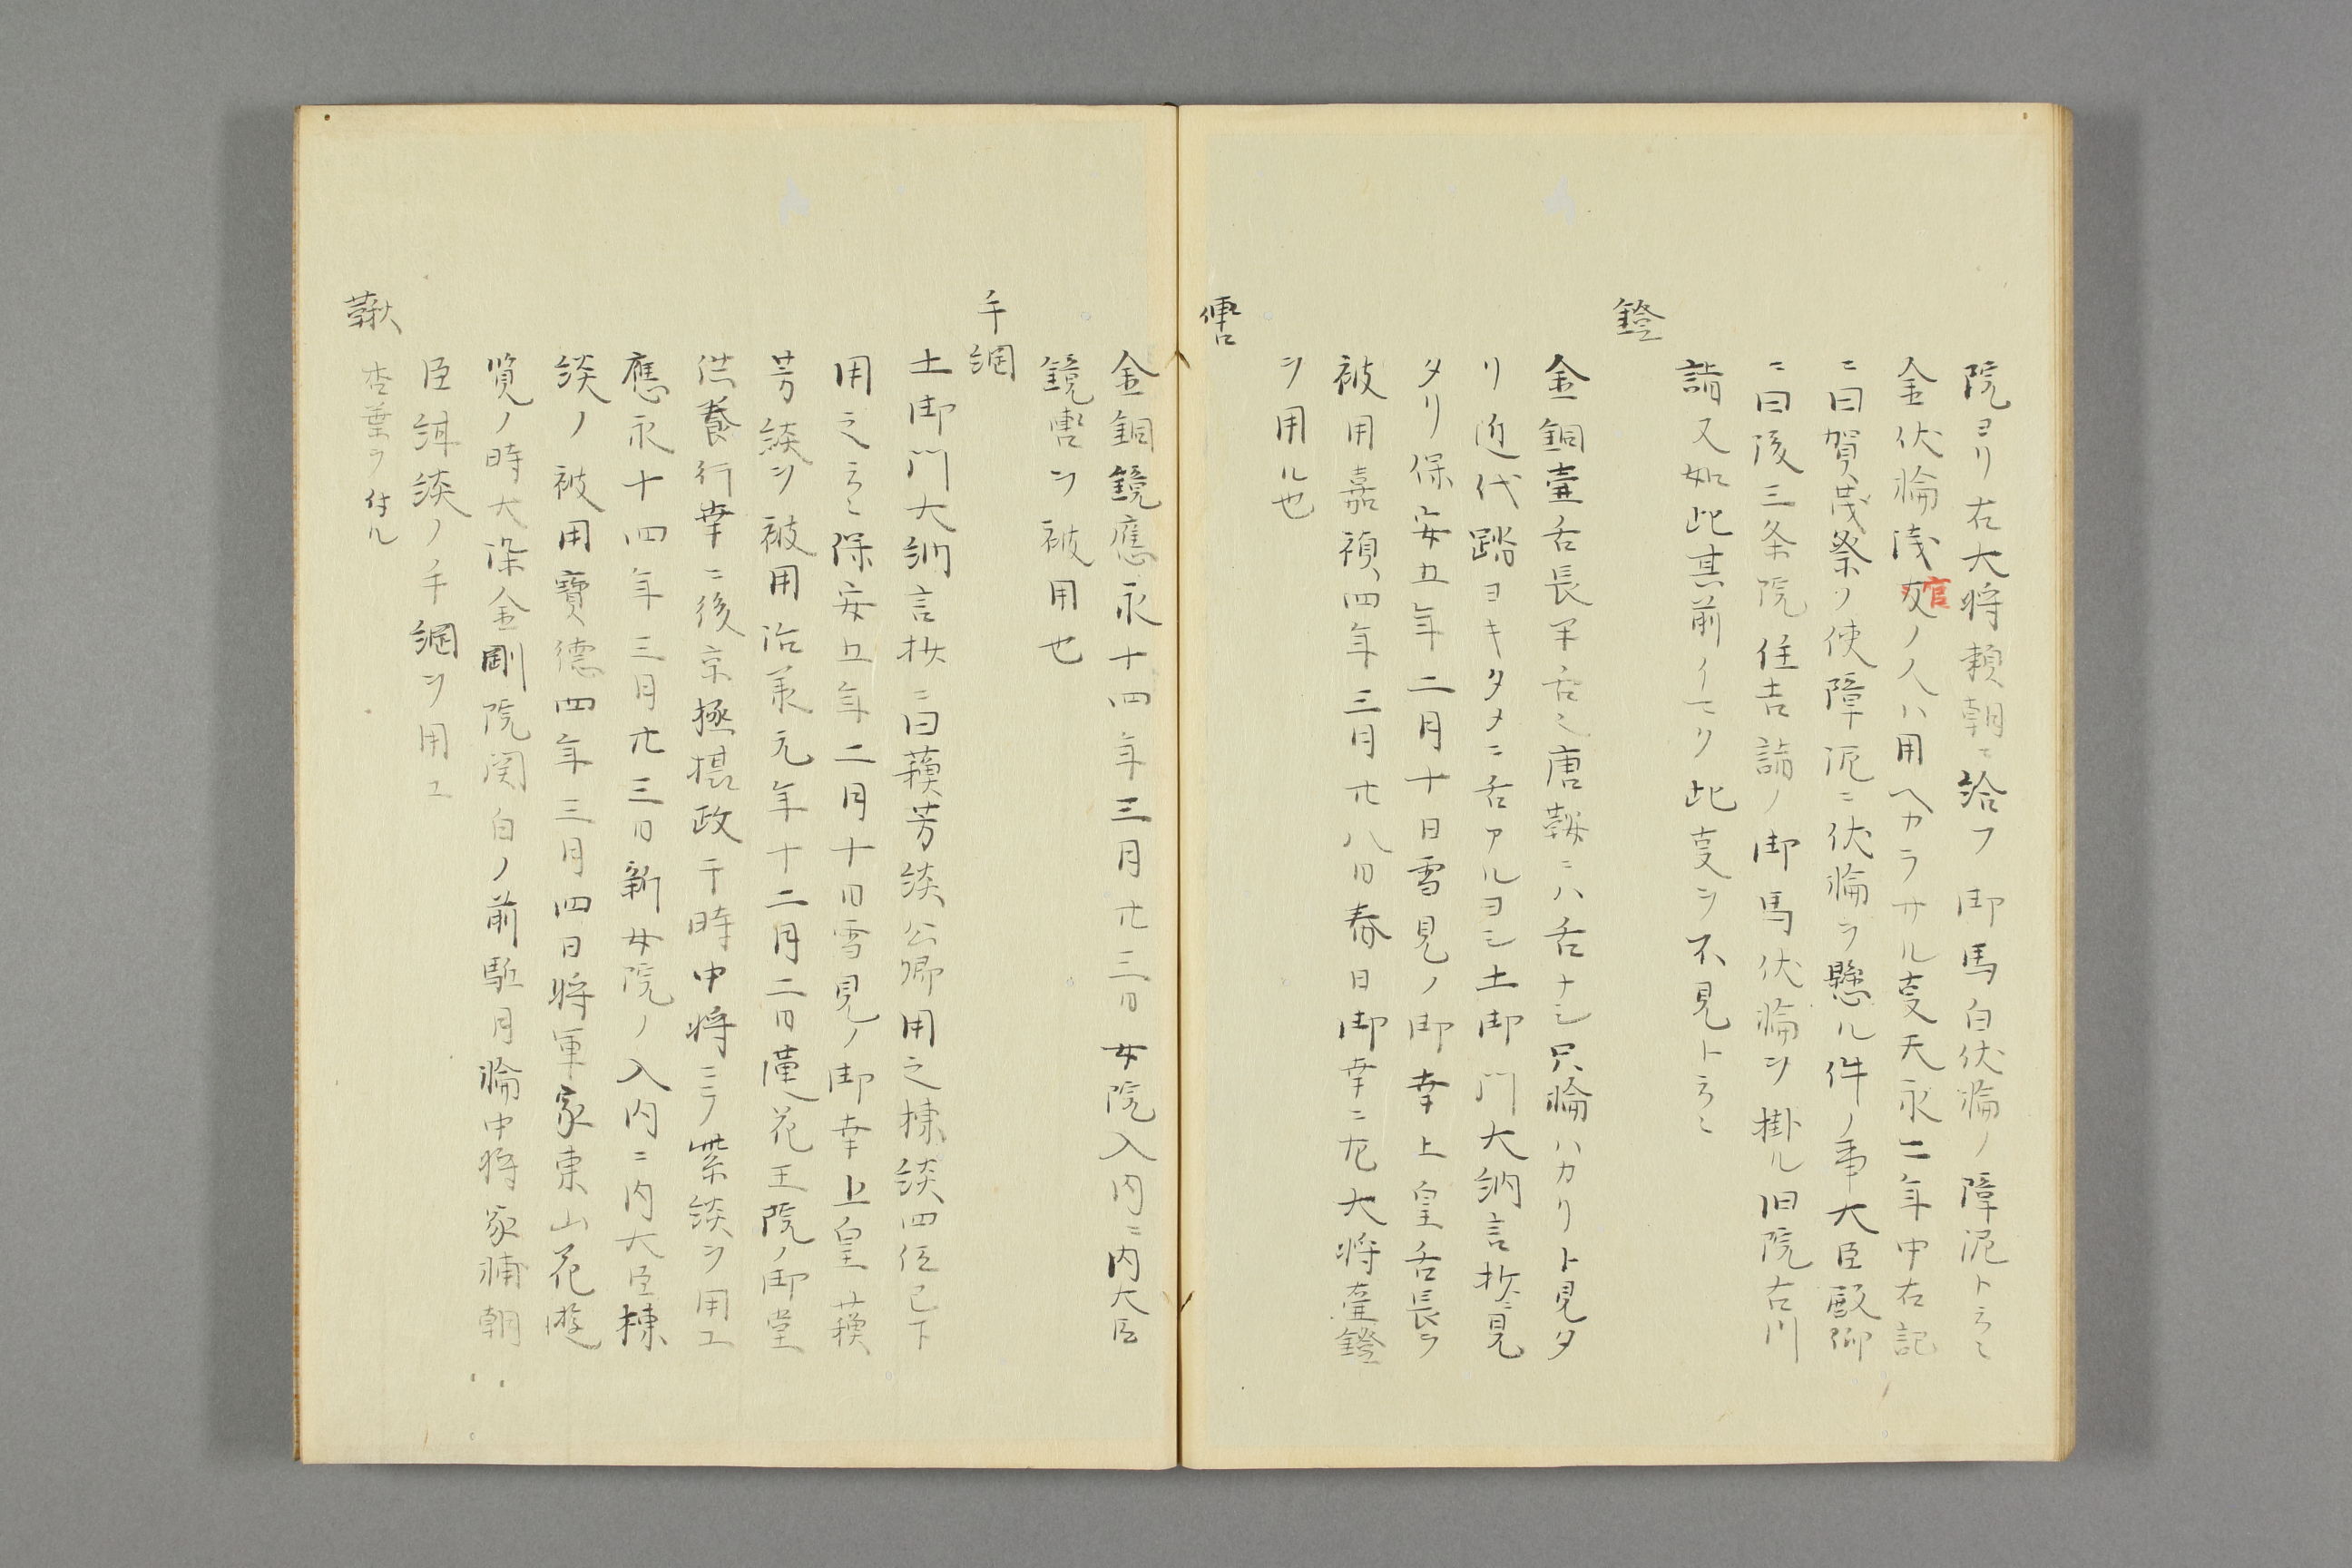 院ヨリ右大将頼朝ニ給フ御馬白伏輪ノ障泥ト云々
金伏輪浅官ノ人ハ用ヘカラサル叓天永二年中右記
ニ曰賀茂祭ノ使障泥ニ伏輪ヲ懸ル件ノ事大臣殿仰
ニ曰後三条院住吉詣ノ御馬伏輪ヲ掛ル旧院石川
詣又如此其前ノ此叓ヲ不見ト云々
鐙
金銅壷舌長半舌也唐鞍ニハ舌ナシ只輪ハカリト見タ
リ近代踏ヨキタメニ舌アルヨシ土御門大納言抄ニ見
タリ保安五年二月十日雪見ノ御幸上皇舌長ヲ
被用嘉禎四年三月廿八日春日御幸ニ左大将壷鐙
ヲ用ル也
轡
金銅鏡應永十四年三月廿三日女院入内ニ内大臣
鏡轡ヲ被用也
手綱
土御門大納言抄ニ曰蘓芳緂公卿用之棟緂四位已下
用之云々保安五年二月十日雪見ノ御幸上皇蘓
芳緂ヲ被用治承元年十二月二日蓮花王院ノ御堂
供養行幸ニ後京極摂政干時中将ニテ紫緂ヲ用ユ
應永十四年三月廿三日新女院ノ入内ニ内大臣棟
緂ノ被用寶德四年三月四日将軍家東山花遊
覧ノ時大染金剛院関白ノ前駈月輪中将家輔朝
臣緂ノ手綱ヲ用ユ
鞦
杏葉ヲ付ル